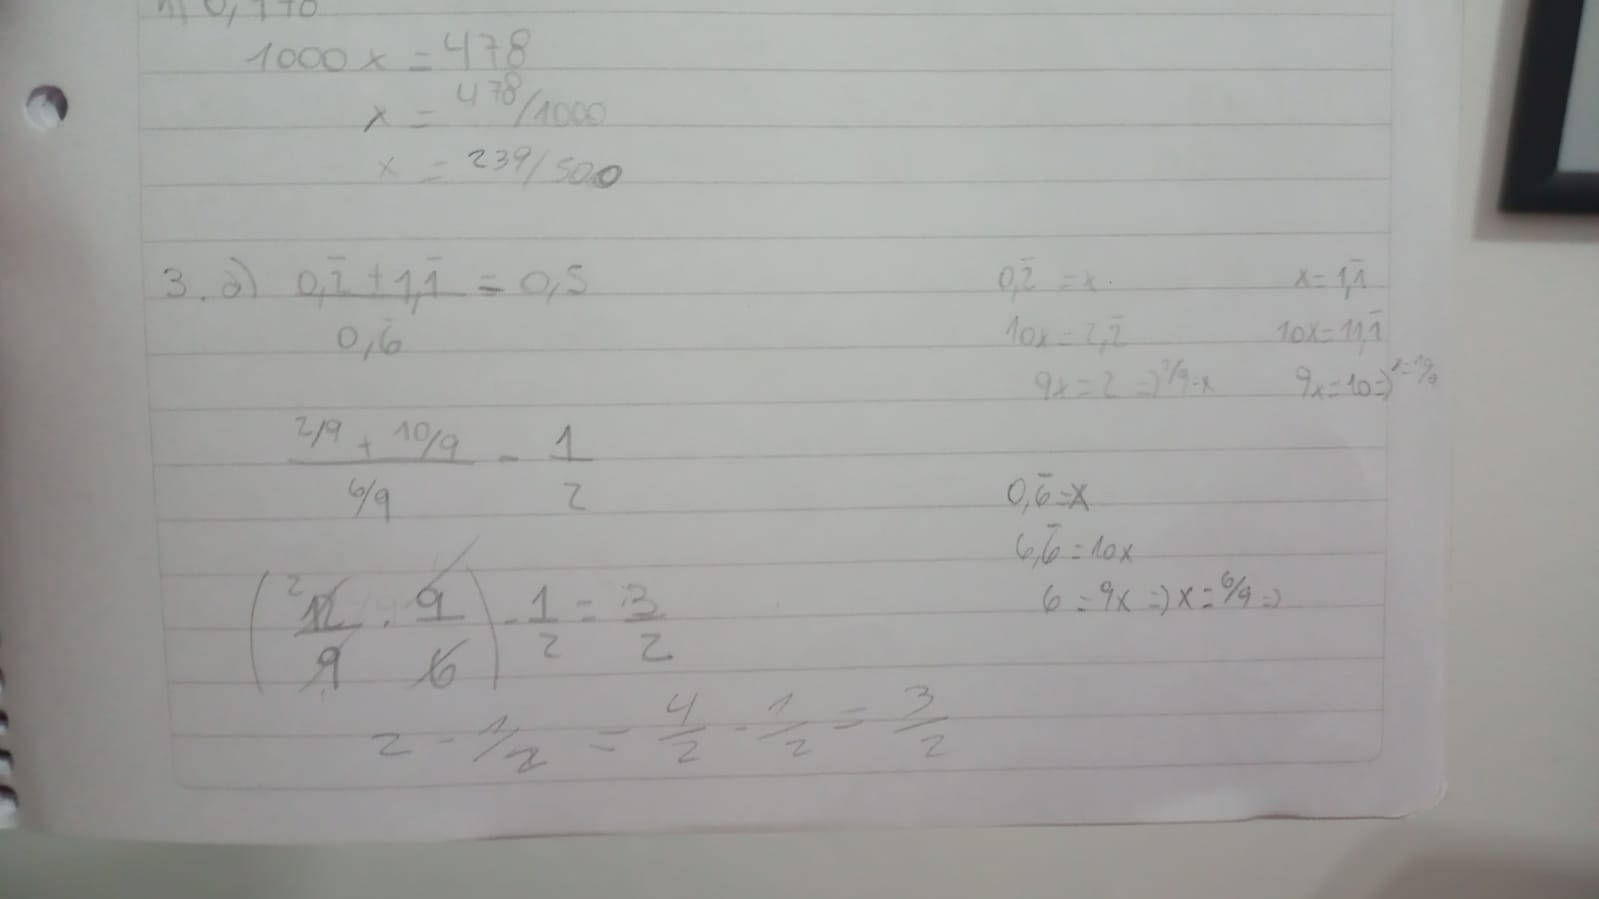 1000 x = 478
x = 478/1000
x = 239/500
3. a) 0,2̄ + 1,1̄ = 0,5
0,6̄
2/9 + 10/9 - 1
6/9 2
(²12/9 . 9/6) - 1/2 = 3/2
2 - 1/2 = 4/2 - 1/2 = 3/2
0,2̄ = x
10x = 2,2̄
9x = 2 => 2/9 = x
x = 1,1̄
10x = 11,1̄
9x = 10 => x = 10/9
0,6̄ = x
6,6̄ = 10x
6 = 9x => x = 6/9 =>